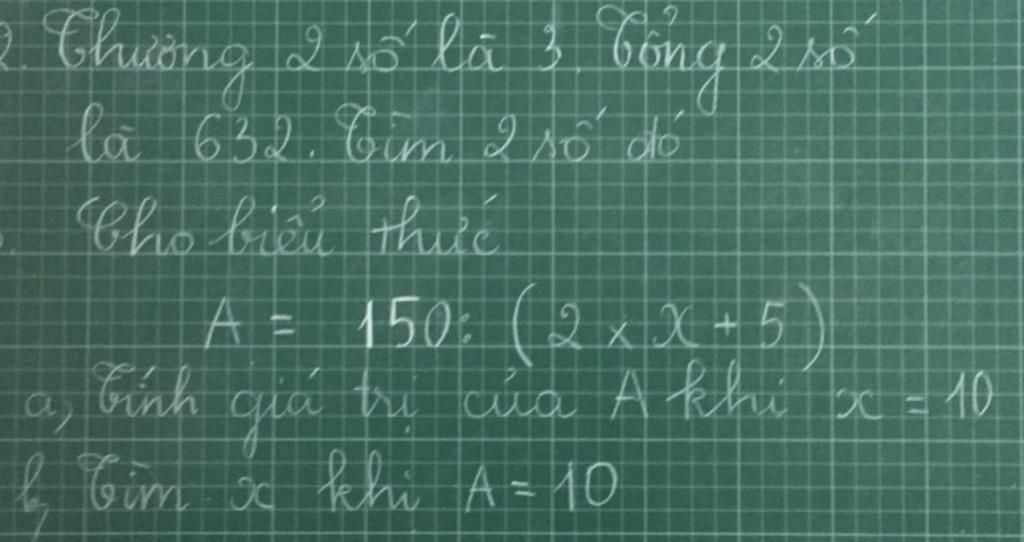 2. Thương 2 số là 3. Tổng 2 số
là 632. Tìm 2 số đó
Cho biểu thức
A = 150 : (2 x x + 5)
a, Tính giá trị của A khi x = 10
b, Tìm x khi A = 10